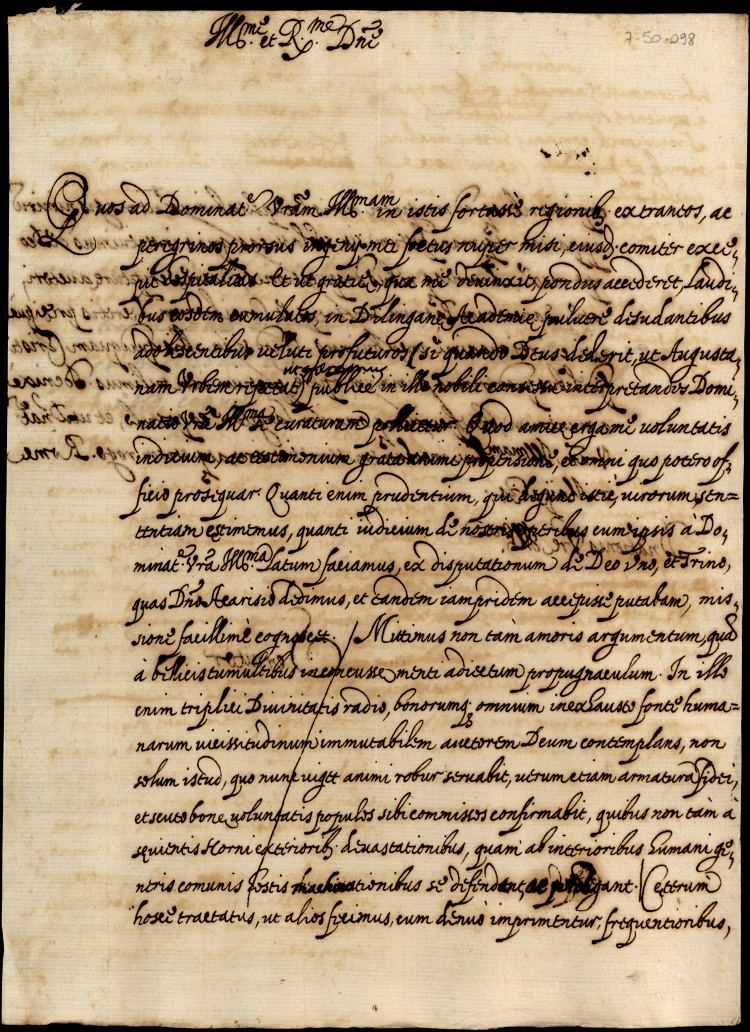 Ill.me et R.me Dne
7-50-098
Quos ad Dominat. Vram Ill.mam in istis fortassè regionib. extraneos, ac
peregrinos prorsus ingenij mei foetus nuper misi, eiusd. comiter exce-
pit hospitalitas. Et ut gratiae, qua me devinxit, pondus accederet, laudi-
bus eosdem cumulatos, in Dilingana Academiae pulvere desudantibus
adolescentibus veluti profuturos (si quando Deus dederit, ut Augusta-
nam Urbem repetat) publicè in illo nobili consessu interpretandos Domi-
natio Vra Ill.ma se curaturam pollicetur. Quod amicae erga me voluntatis
indicium, ac testimonium grata animi propensione, et omni quo potero of-
ficio prosequar. Quanti enim prudentium, qui degunt istic, virorum sen-
tentiam estimemus, quanti iudicium de nostris operibus cum ipsis à Do-
minat. Vra Ill.ma latum faciamus, ex disputationum de Deo Uno, et Trino,
quas Dno Acarisio dedimus, et tandem iampridem accepisse putabam, mis-
sione facillimè cognoscet. / Mittimus non tàm amoris argumentum, quàm
à bellicis tumultibus inconcussae menti adiectum propugnaculum. In illo
enim triplici Divinitatis radio, bonorumq. omnium inexhausto fonte huma-
narum vicissitudinum immutabilem auctorem Deum contemplans, non
solum istud, quo nunc viget animi robur servabit, verum etiam armatura fidei,
et scuto bonae voluntatis populos sibi commissos confirmabit, quibus non tàm à
sequientis Horni exteriorib. devastationibus, quam ab interioribus humani ge-
neris comunis hostis machinationibus se defendant, ac protegant. / Ceterum
hosce tractatus, ut alios fecimus, cum denuò imprimentur, frequentioribus,